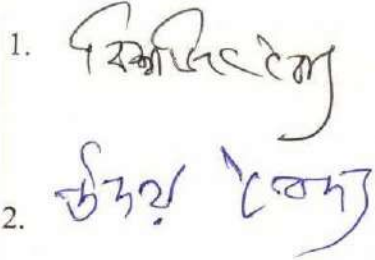 1. বিশ্বজিৎ বৈদ্য
2. উদয় বৈদ্য